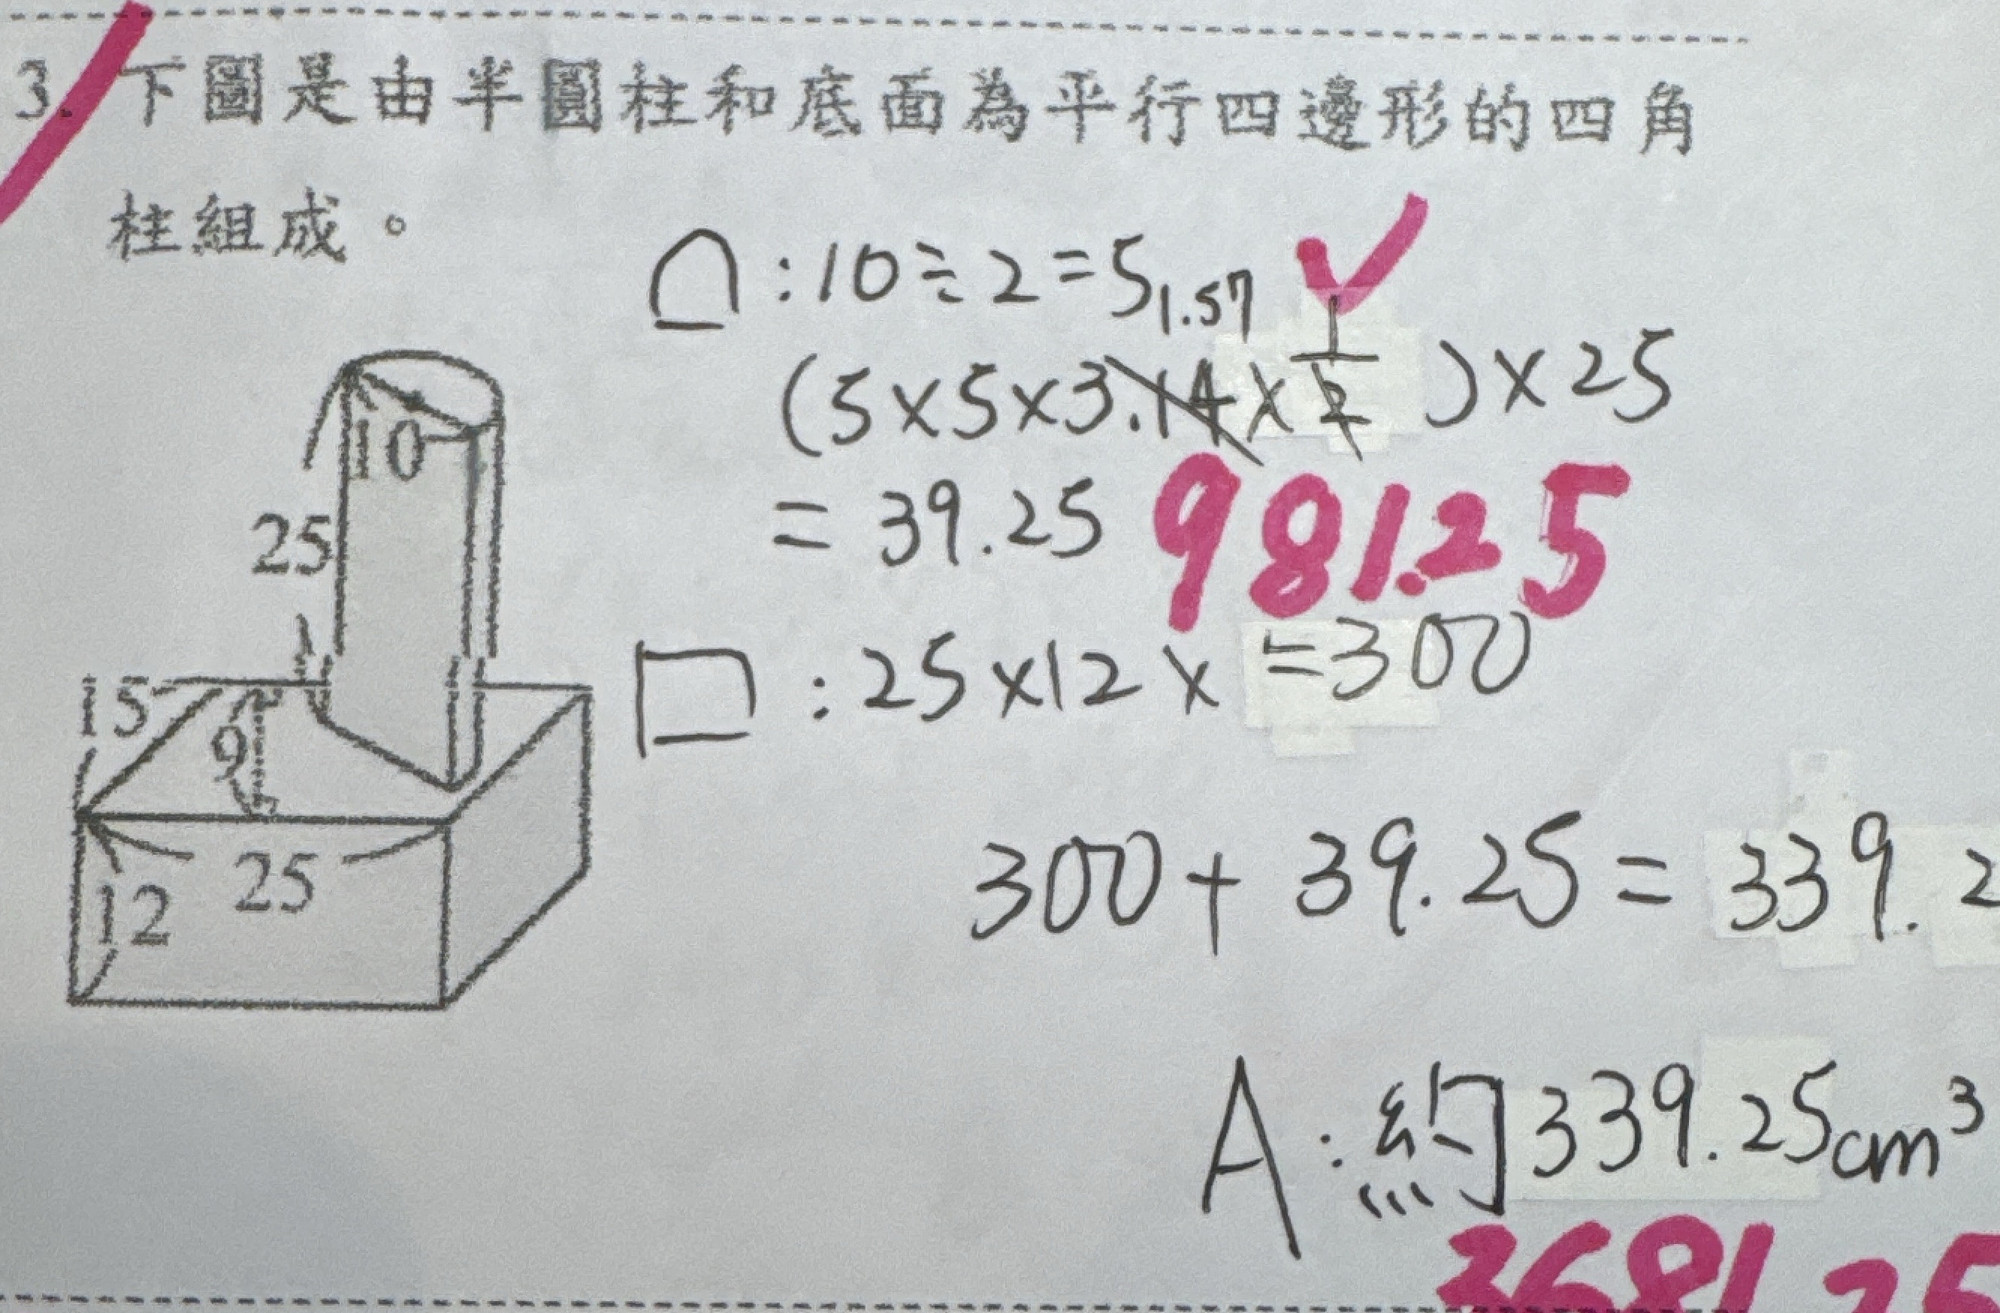 3. 下圖是由半圓柱和底面為平行四邊形的四角
柱組成。
: 10 ÷ 2 = 5
1.57 1
(5 × 5 × 3.14 × 1/2) × 25
= 39.25 981.25
: 25 × 12 × = 300
300 + 39.25 = 339.2
A: 約 339.25 cm³
3681.25
10
25
15
9
25
12